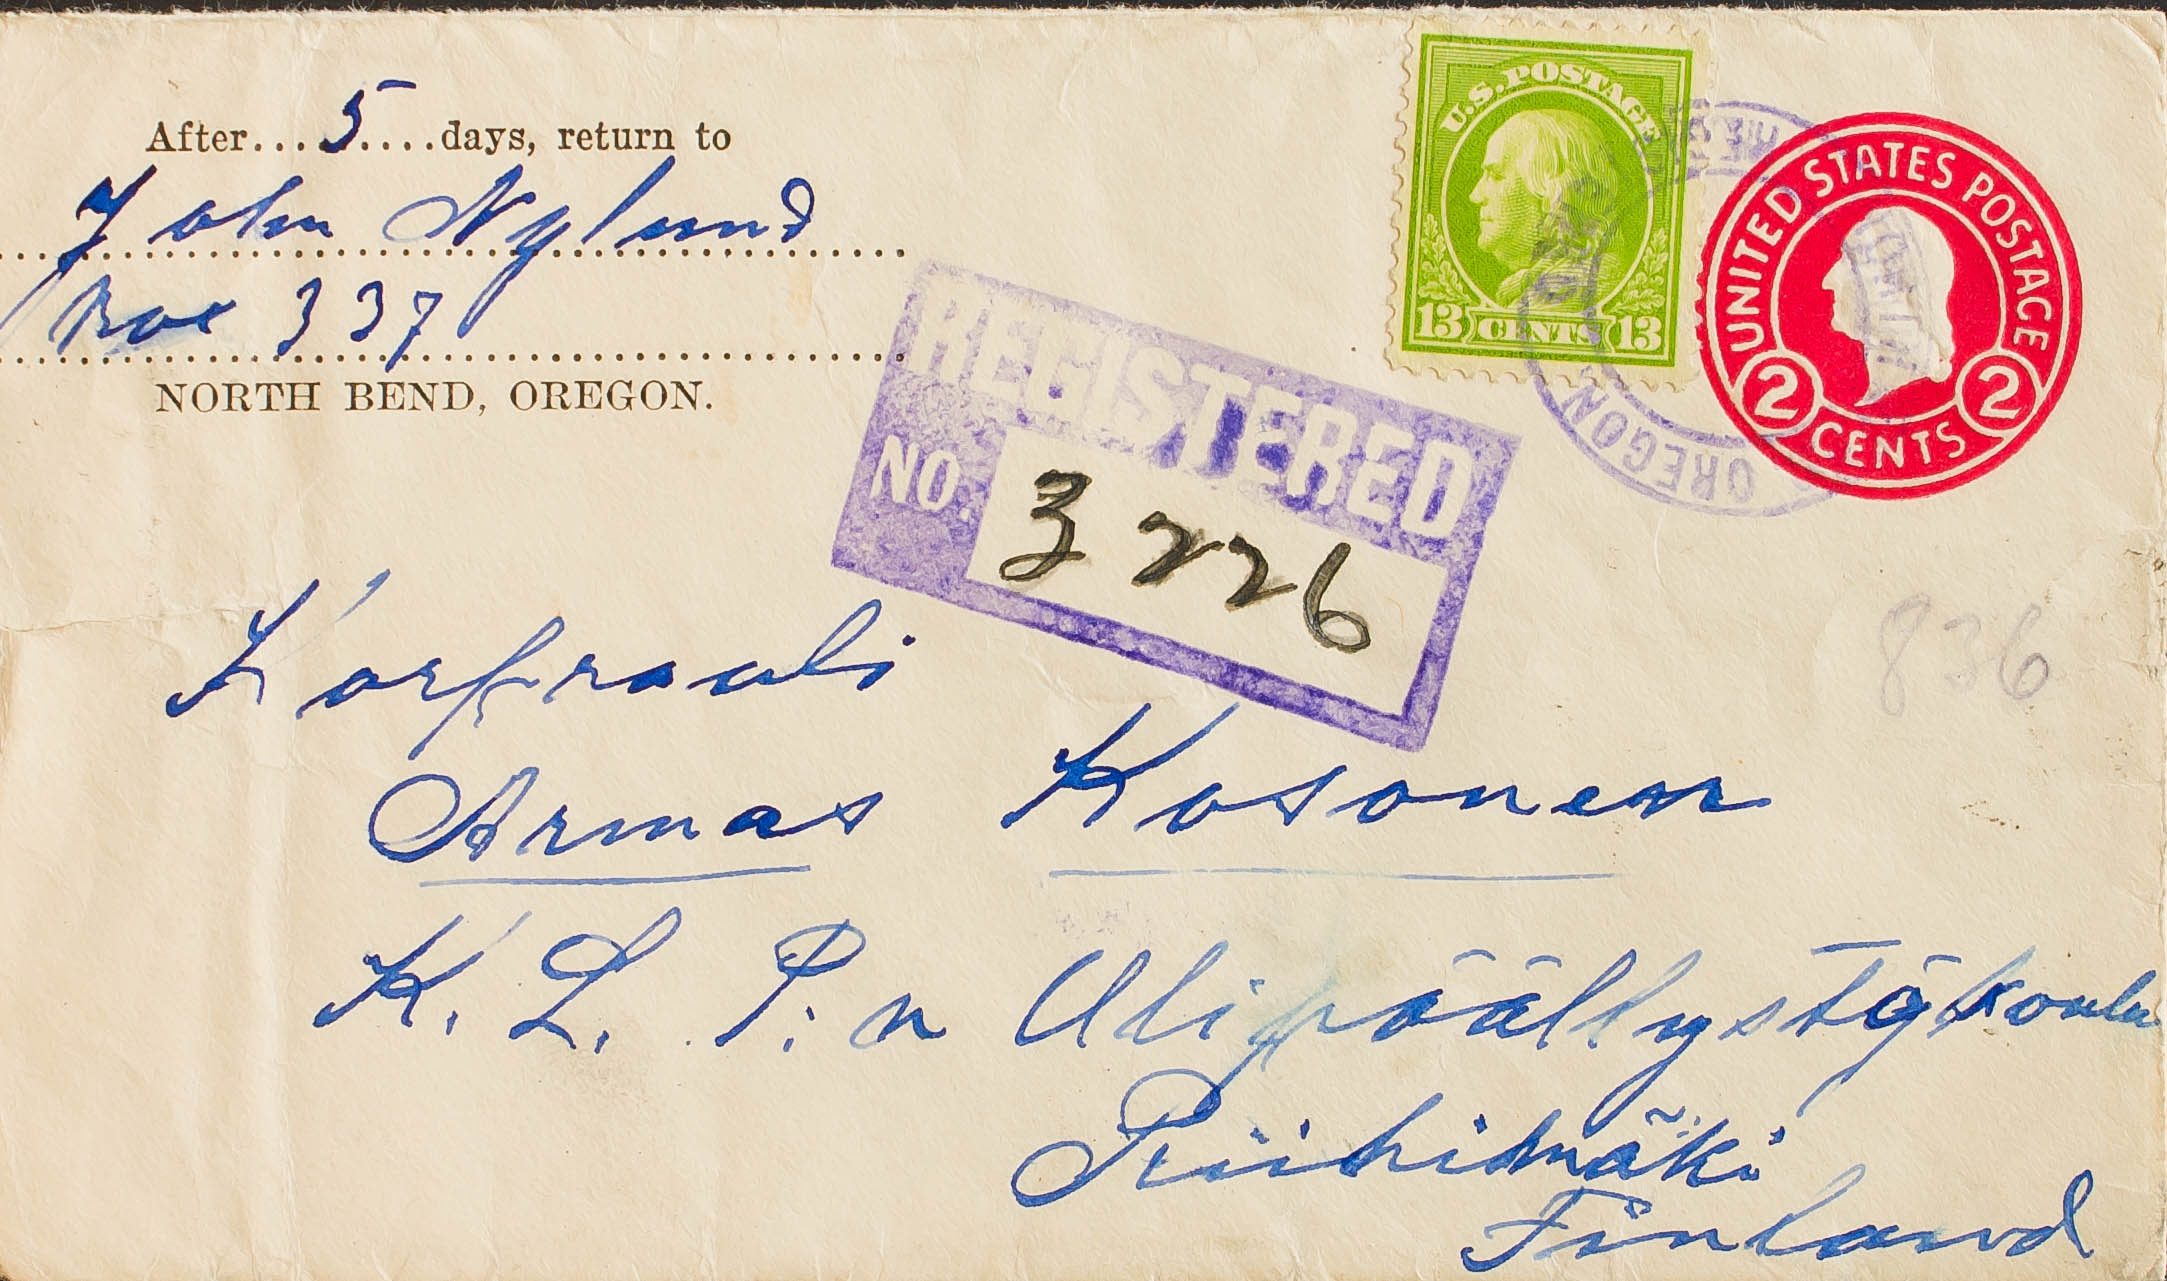 After...5....days, return to
John Nylund
Box 337
NORTH BEND, OREGON.
U.S. POSTAGE
13 CENTS 13
UNITED STATES POSTAGE
2 CENTS 2
OREGON
REGISTERED
NO. 3226
836
Korpraali
Armas Kosonen
K. L. P:n Alipäällystökoulu
Riihimäki
Finland